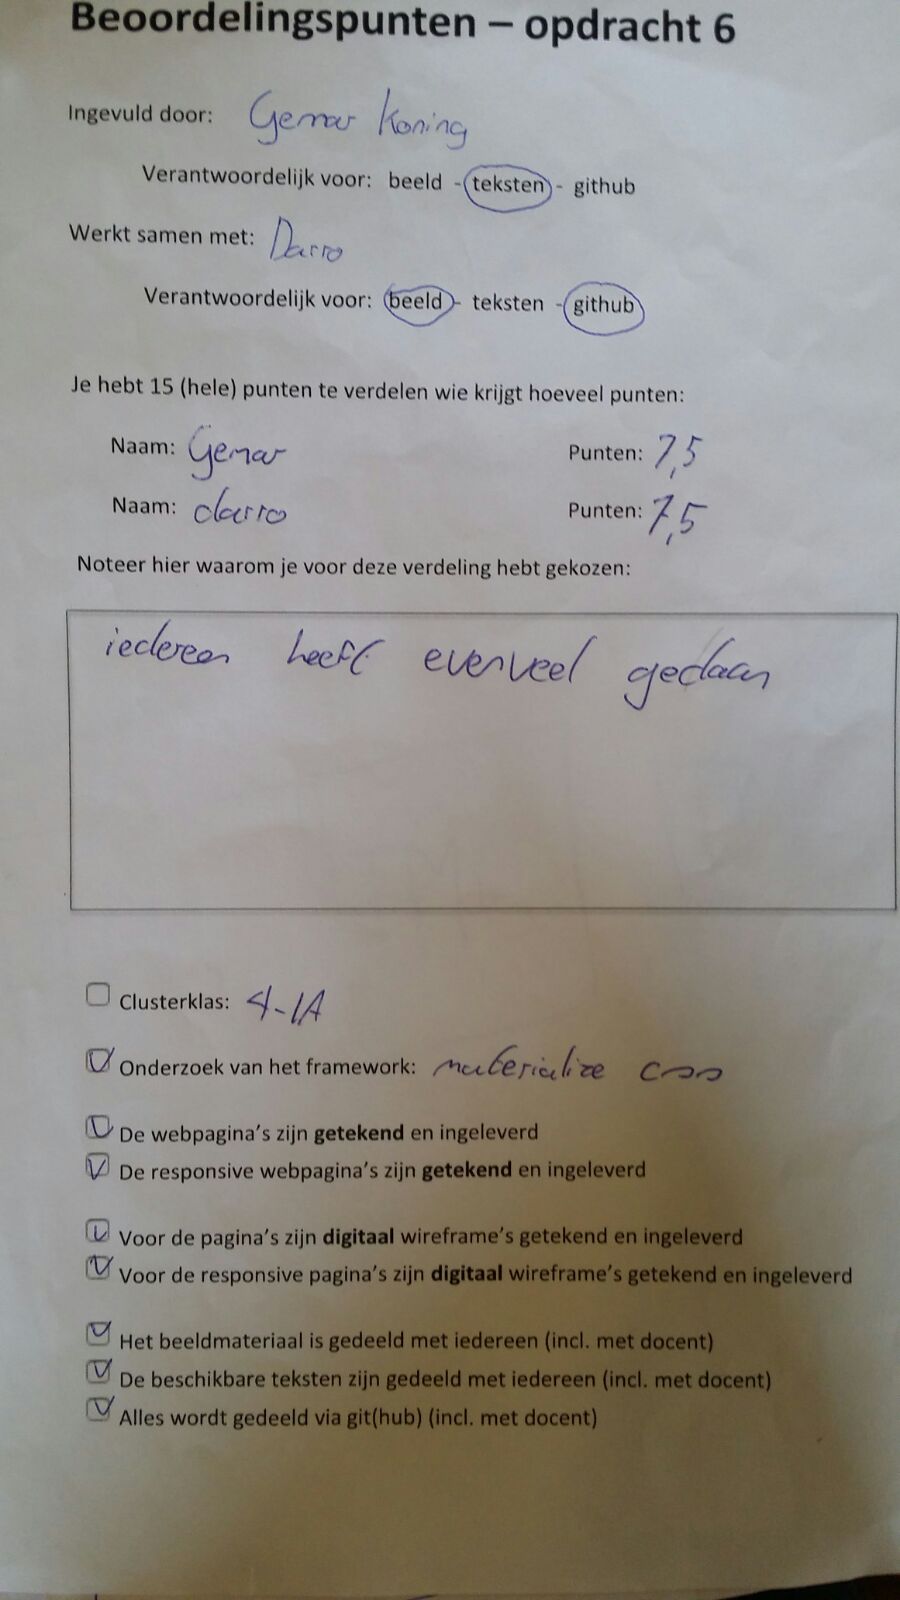 Beoordelingspunten – opdracht 6
Ingevuld door: Gemar Koning
Verantwoordelijk voor: beeld - teksten - github
Werkt samen met: Darro
Verantwoordelijk voor: beeld - teksten - github
Je hebt 15 (hele) punten te verdelen wie krijgt hoeveel punten:
Naam: Gemar Punten: 7,5
Naam: darro Punten: 7,5
Noteer hier waarom je voor deze verdeling hebt gekozen:
iedereen heeft evenveel gedaan
Clusterklas: 4-1A
Onderzoek van het framework: materialize css
De webpagina's zijn getekend en ingeleverd
De responsive webpagina's zijn getekend en ingeleverd
Voor de pagina's zijn digitaal wireframe's getekend en ingeleverd
Voor de responsive pagina's zijn digitaal wireframe's getekend en ingeleverd
Het beeldmateriaal is gedeeld met iedereen (incl. met docent)
De beschikbare teksten zijn gedeeld met iedereen (incl. met docent)
Alles wordt gedeeld via git(hub) (incl. met docent)